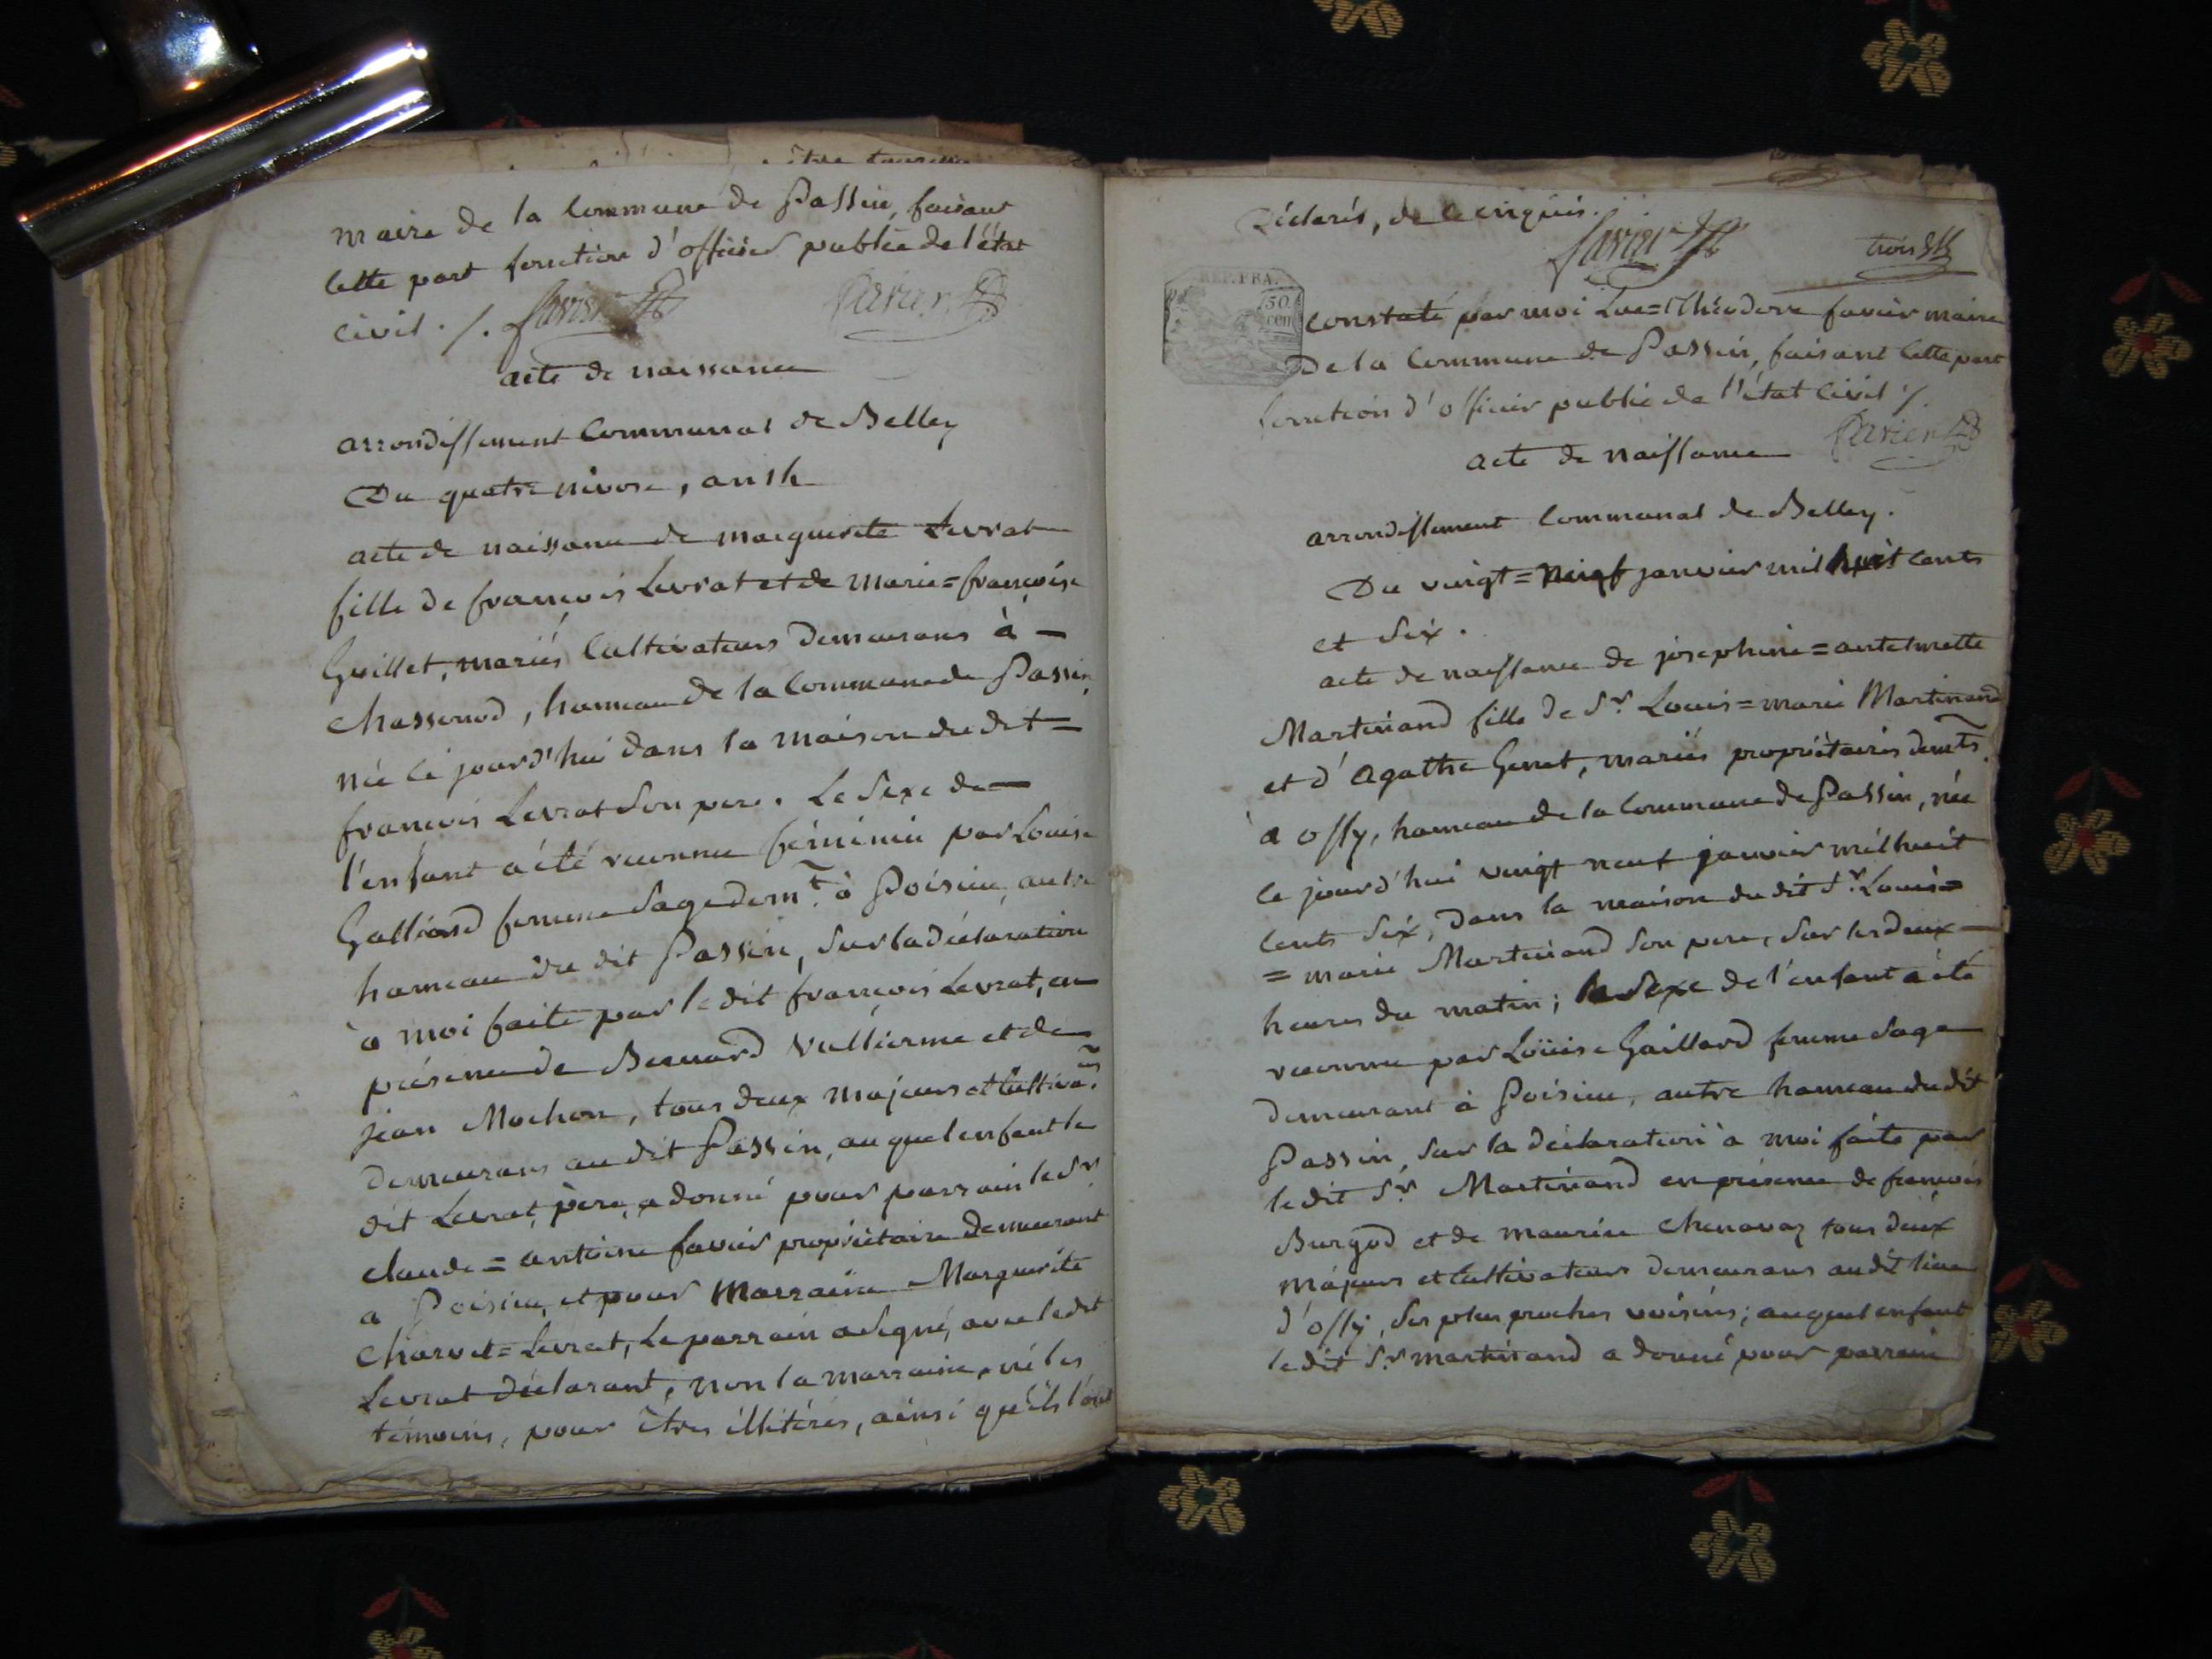 maire de la Commune de Passin, faisant
cette part fonction d'officier public de l'état
civil ./. favier
favier
acte de naissance
arrondissement Communal de Belley
Du quatre nivose, an 14
acte de naissance de marguerite Levrat
fille de françois Levrat et de Marie=françoise
Guillet, mariés Cultivateurs demeurans à —
Chassonod, hameau de la Commune de Passin,
née ce jourd'hui dans la maison du dit —
francois Levrat son pere. Le Sexe de —
l'enfant a été reconnu féminin par Louise
Galliard femme Sage demt. à Poisieu, autre
hameau du dit Passin, Sur la déclaration
à moi faite par le dit françois Levrat, en
présence de Bernard Vullierme et de
jean Mochon, tous deux majeurs et Cultivars.
demeurans au dit Passin, au quel enfant le
dit Levrat, père, a donné pour parrain le Sr.
Claude = antoine favier propriétaire demeurant
a Poisieu, et pour Marraine Marguerite
Charvet=Levrat, Le parrain a Signé, avec le dit
Levrat déclarant, non la marraine, ni les
témoins, pour êtres illitérés, ainsi qu'ils l'ont
Déclarés, de ce enquis.
favier
trois
REP. FRA.
50
cen
constaté par moi Luc=Théodore favier maire
De la Commune de Passin, faisant cette part
fonction d'officier public de l'état Civil ./.
favier
acte de naissance
arrondissement Communal de Belley.
Du vingt=neuf janvier mil huit cents
et Six.
acte de naissance de josephine=antelmette
Martinand fille de Sr. Louis=marie Martinand
et d'Agathe Genet, mariés propriètaires demts.
à ossy, hameau de la Commune de Passin, née
ce jourd'hui vingt neuf janvier mil huit
cents Six, dans la maison du dit Sr. Louis=
=marie Martinand Son pere, Sur les deux —
heures du matin; le Sexe de l'enfant a été
reconnu par Louise Gaillard femme Sage
demeurant à Poisieu, autre hameau du dit
Passin, Sur la déclaration à moi faite par
le dit Sr. Martinand en présence de françois
Burgod et de maurice Chenavaz tous deux
majeurs et Cultivateurs demeurans au dit lieu
d'ossy, Ses plus proches voisins; au quel enfant
le dit Sr. martinand a donné pour parrain